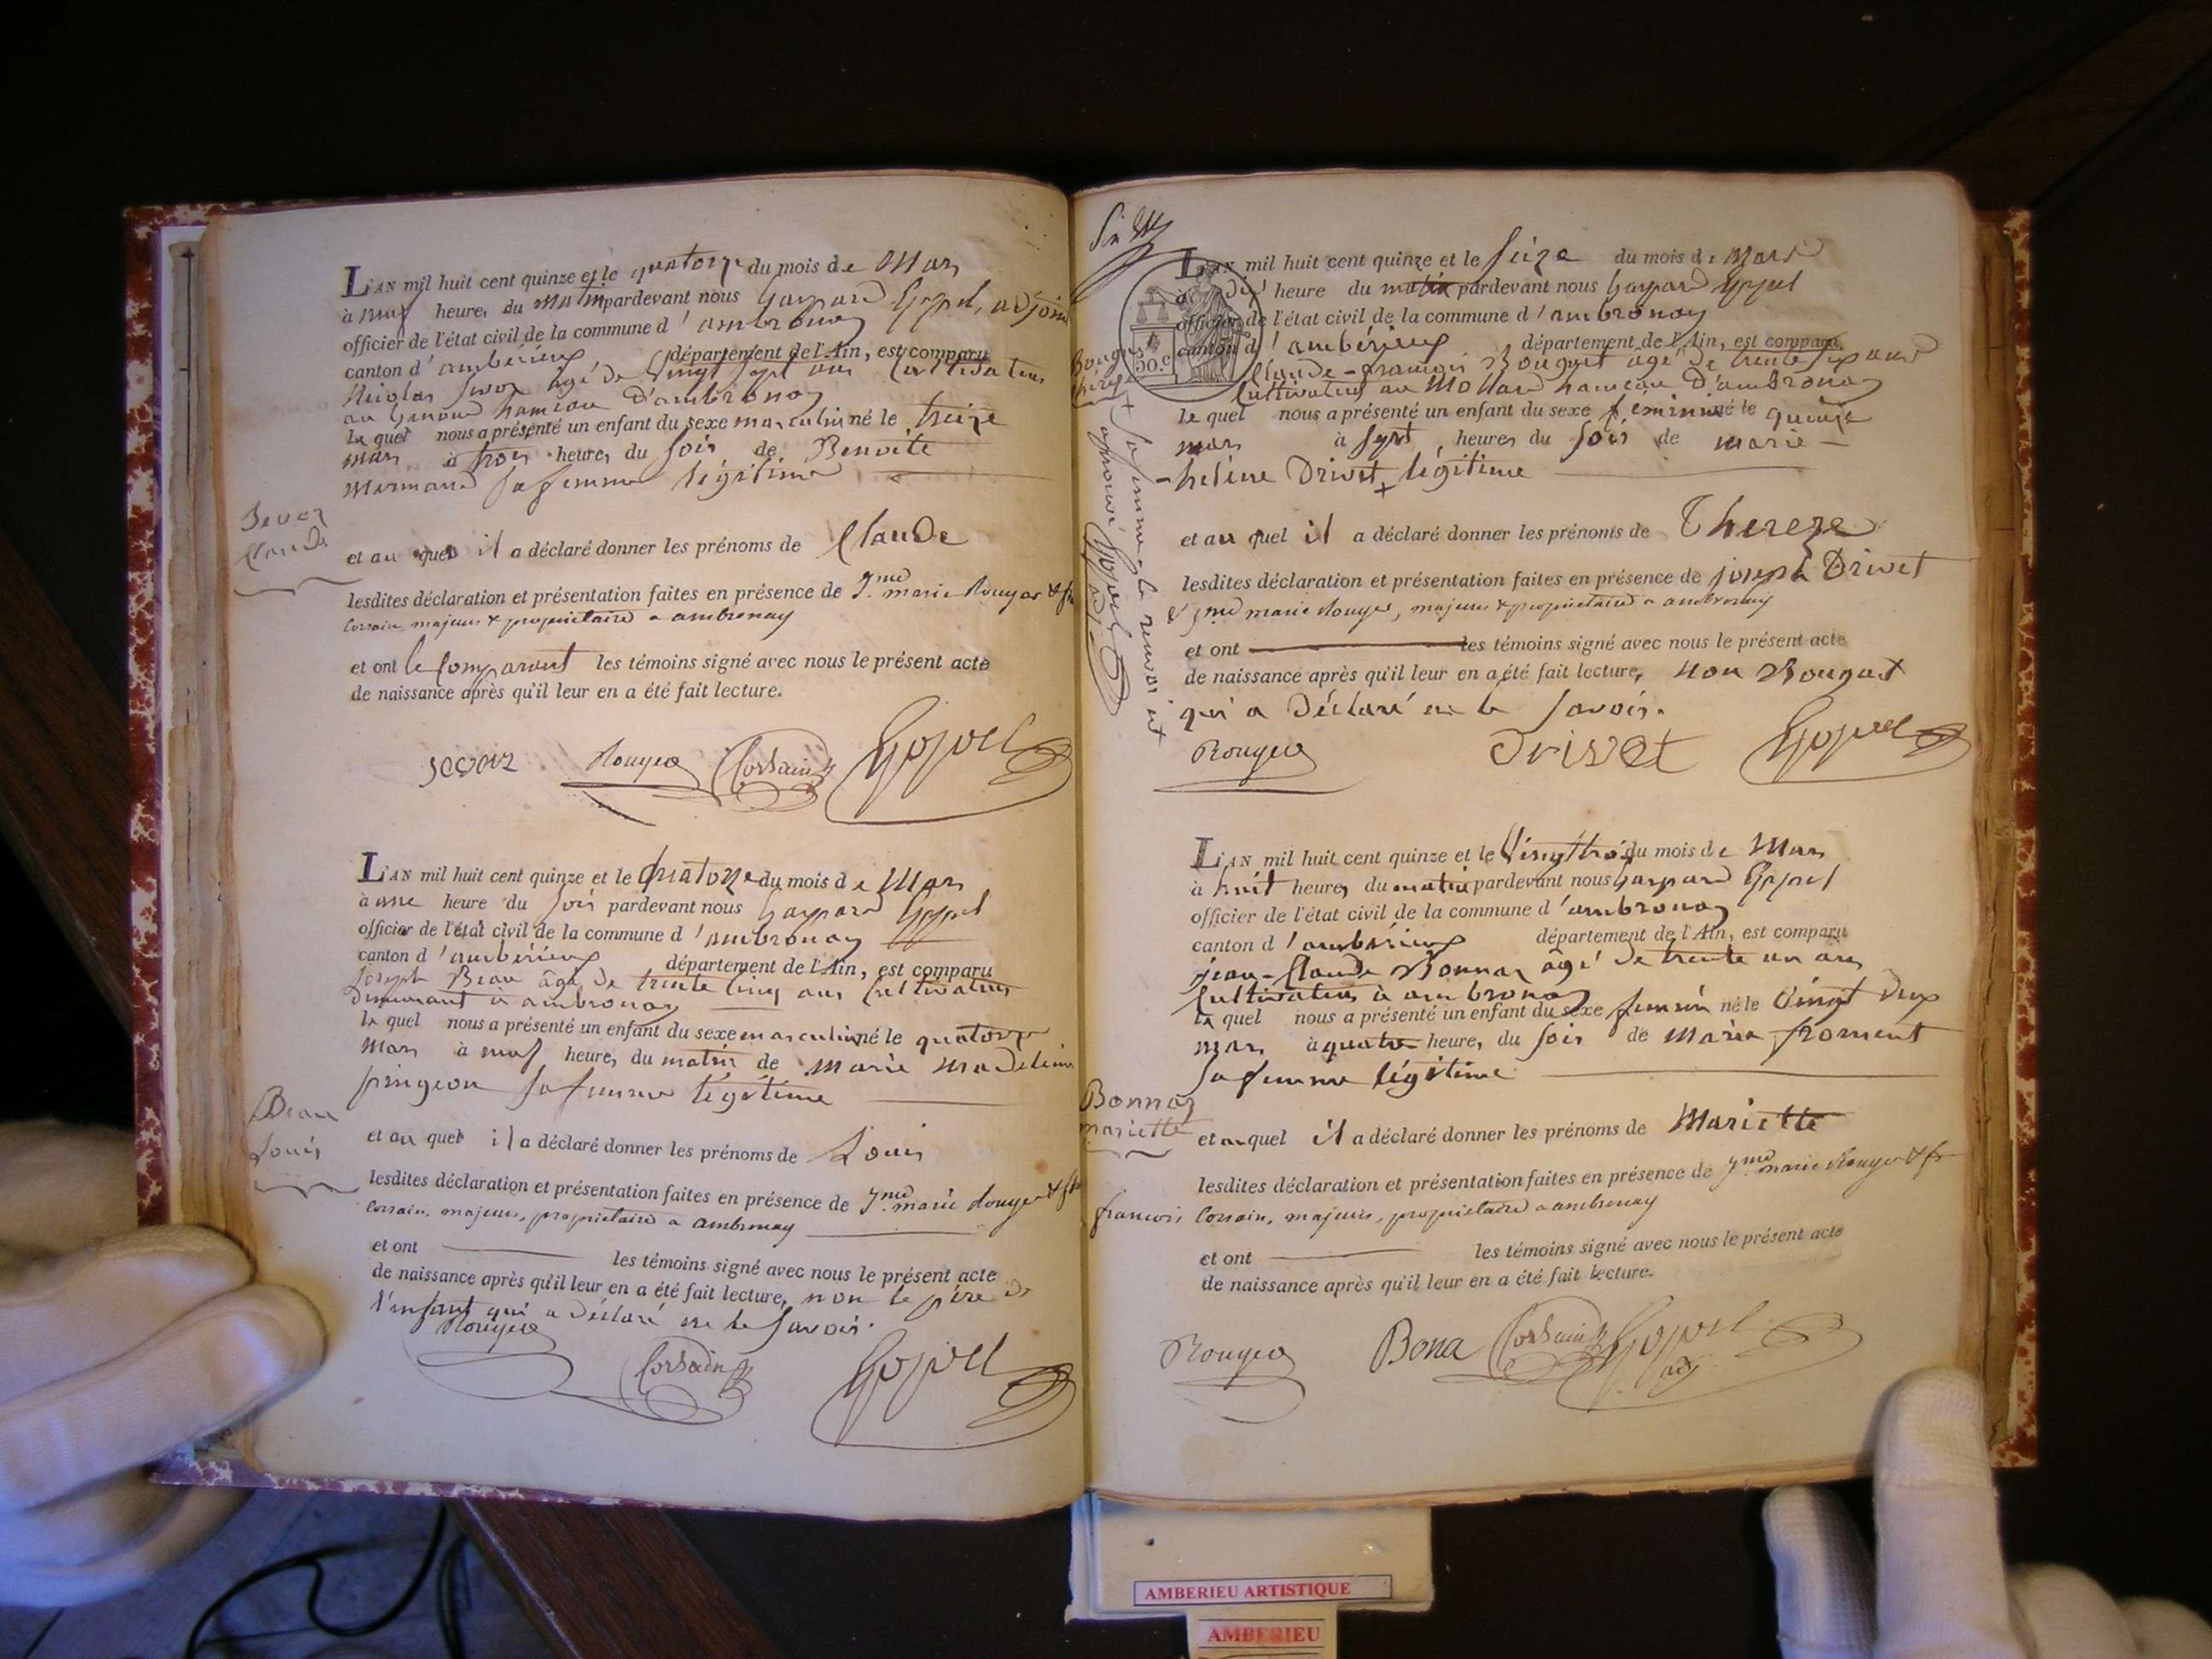 L'AN mil huit cent quinze et le quatorze du mois de Mars
à neuf heures du matin pardevant nous Gaspard Goppel, adjoint
officier de l'état civil de la commune d'ambronay
canton d'ambérieux département de l'Ain, est comparu
Nicolas âgé de vingt sept ans Cultivateur
au hameau d'ambronay
le quel nous a présenté un enfant du sexe masculin né le treize
mars à trois heures du soir de Benoite
Mermand sa femme légitime
Claude
et au quel il a déclaré donner les prénoms de Claude
lesdites déclaration et présentation faites en présence de J.me marie Rouyer & fs
Corsain, majeurs & propriétaires a ambronay
et ont le comparant les témoins signé avec nous le présent acte
de naissance après qu'il leur en a été fait lecture.
Rouyer Corsain Goppel
L'AN mil huit cent quinze et le quatorze du mois de Mars
à une heure du soir pardevant nous Gaspard Goppel
officier de l'état civil de la commune d'ambronay
canton d'ambérieux département de l'Ain, est comparu
Joseph Beau âgé de trente cinq ans Cultivateur
demeurant à ambronay
le quel nous a présenté un enfant du sexe masculin né le quatorze
Mars à neuf heures du matin de Marie Madeleine
pingeon sa femme légitime
Beau
Louis
et au quel il a déclaré donner les prénoms de Louis
lesdites déclaration et présentation faites en présence de J.me marie Rouyer & fs
Corsain, majeurs, propriétaires a ambronay
et ont les témoins signé avec nous le présent acte
de naissance après qu'il leur en a été fait lecture, non le père de
l'enfant qui a déclaré ne le savoir.
Rouyer
Corsain Goppel
L'AN mil huit cent quinze et le seize du mois de Mars
à dix heure du matin pardevant nous Gaspard Goppel
officier de l'état civil de la commune d'ambronay
canton d'ambérieux département de l'Ain, est comparu
50 c
Claude-françois Bouguet âgé de trente six ans
Cultivateur au Mollard hameau d'ambronay
le quel nous a présenté un enfant du sexe féminin né le quinze
mars à sept heures du soir de marie-
-hélène Drivet + légitime
+ sa femme, le renvoi est
approuvé Goppel
et au quel il a déclaré donner les prénoms de Thereze
lesdites déclaration et présentation faites en présence de joseph Drivet
& J.me marie Rouyer, majeurs & propriétaires a ambronay
et ont les témoins signé avec nous le présent acte
de naissance après qu'il leur en a été fait lecture, non Bouguet
qui a déclaré ne le savoir.
Rouyer Drivet Goppel
L'AN mil huit cent quinze et le vingt trois du mois de Mars
à huit heures du matin pardevant nous Gaspard Goppel
officier de l'état civil de la commune d'ambronay
canton d'ambérieux département de l'Ain, est comparu
jean-Claude Bonnaz âgé de trente un ans
Cultivateur à ambronay
le quel nous a présenté un enfant du sexe feminin né le vingt deux
mars à quatre heures du soir de Marie froment
sa femme légitime
Bonnaz
mariette
et au quel il a déclaré donner les prénoms de Mariette
lesdites déclaration et présentation faites en présence de J.me marie Rouyer & fs
françois Corsain, majeurs, propriétaires a ambronay
et ont les témoins signé avec nous le présent acte
de naissance après qu'il leur en a été fait lecture.
Rouyer Bona Corsain Goppel
adj
AMBERIEU ARTISTIQUE
AMBERIEU